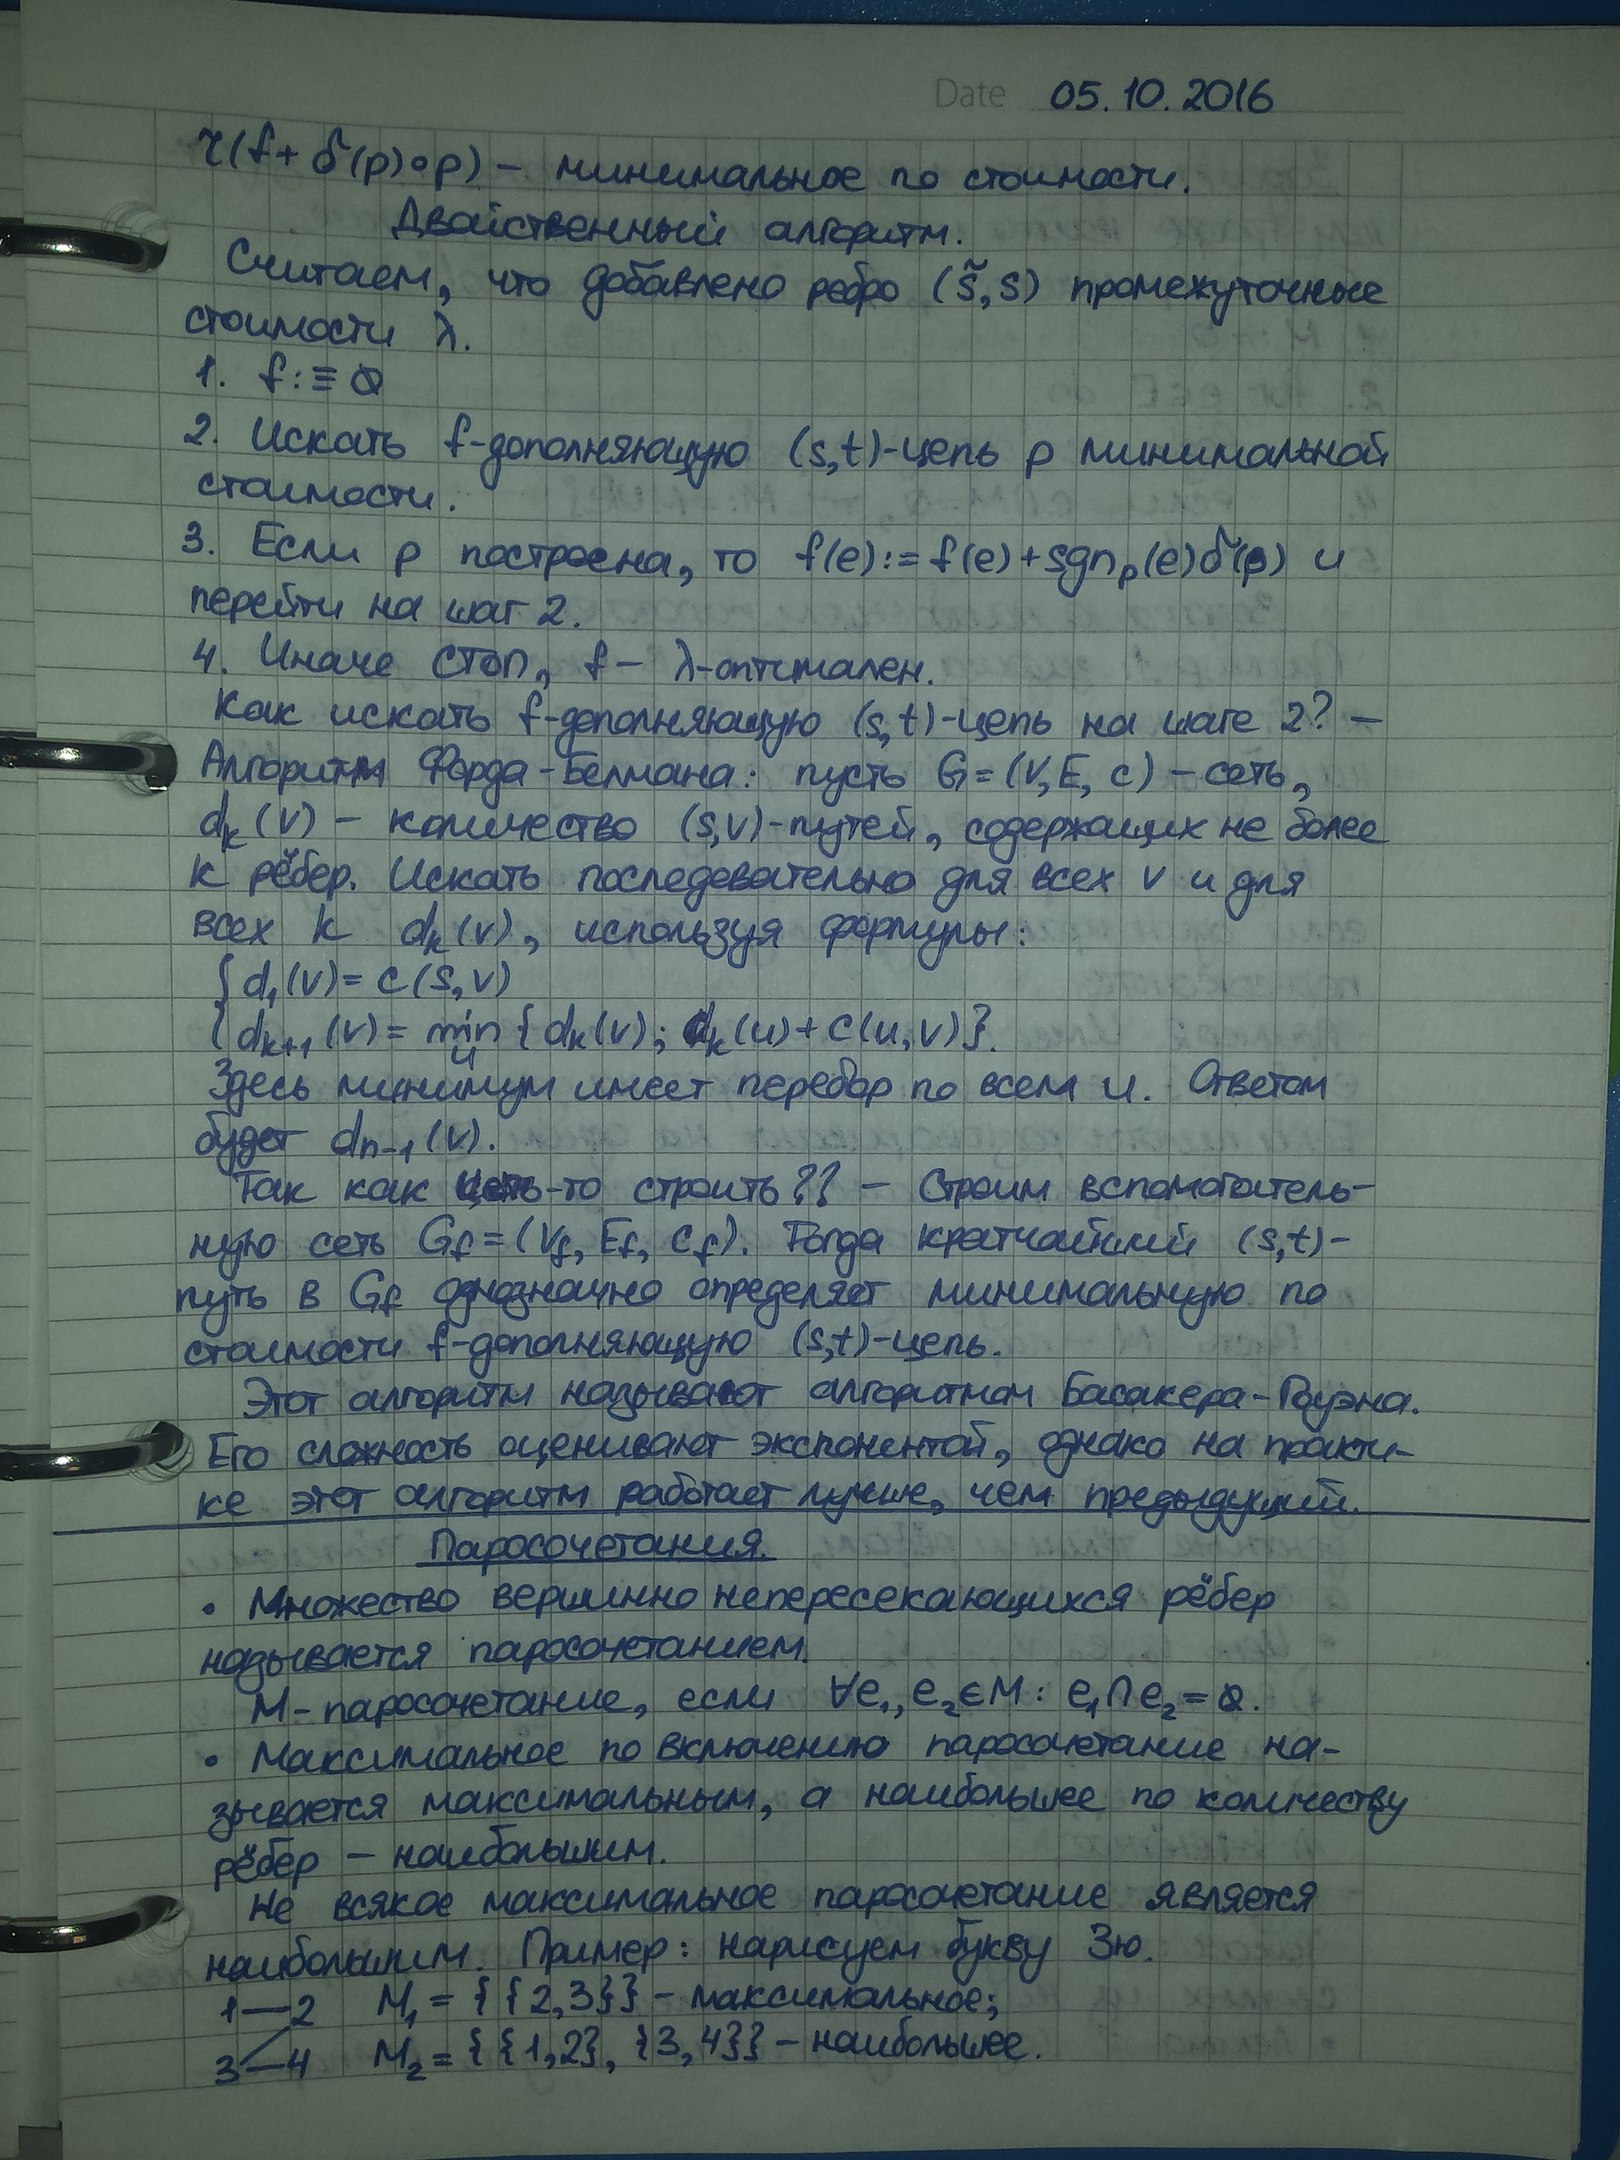 Date 05.10.2016
r(f+δ(p)∘p) – минимальное по стоимости.
Двойственный алгоритм.
Считаем, что добавлено ребро (s̃,s) промежуточные
стоимости λ.
1. f:≡0
2. Искать f-дополняющую (s,t)-цепь p минимальной
стоимости.
3. Если p построена, то f(e):=f(e)+sgnₚ(e)δ(p) и
перейти на шаг 2.
4. Иначе СТОП, f – λ-оптимален.
Как искать f-дополняющую (s,t)-цепь на шаге 2? –
Алгоритм Форда-Белмана: пусть G=(V,E,c) – сеть,
dₖ(v) – количество (s,v)-путей, содержащих не более
k рёбер. Искать последевательно для всех v и для
всех k dₖ(v), используя формулы:
{ d₁(v)=c(s,v)
{ dₖ₊₁(v)= min {dₖ(v); dₖ(u)+c(u,v)}.
u
Здесь минимум имеет перебор по всем u. Ответом
будет dₙ₋₁(v).
Так как цепь-то строить?? – Строим вспомогатель-
ную сеть G_f=(V_f, E_f, c_f). Тогда кратчайший (s,t)-
путь в G_f однозначно определяет минимальную по
стоимости f-дополняющую (s,t)-цепь.
Этот алгоритм называют алгоритмом Басакера-Гоуэна.
Его сложность оценивают экспонентой, однако на практи-
ке этот алгоритм работает лучше, чем предыдущий.
Паросочетания.
• Множество вершинно непересекающихся рёбер
называется паросочетанием.
M – паросочетание, если ∀e₁, e₂∈M: e₁∩e₂=∅.
• Максимальное по включению паросочетание на-
зывается максимальным, а наибольшее по количеству
рёбер – наибольшим.
Не всякое максимальное паросочетание является
наибольшим. Пример: нарисуем букву Зю.
1—2 M₁={{2,3}} – максимальное;
3—4 M₂={{1,2}, {3,4}} – наибольшее.